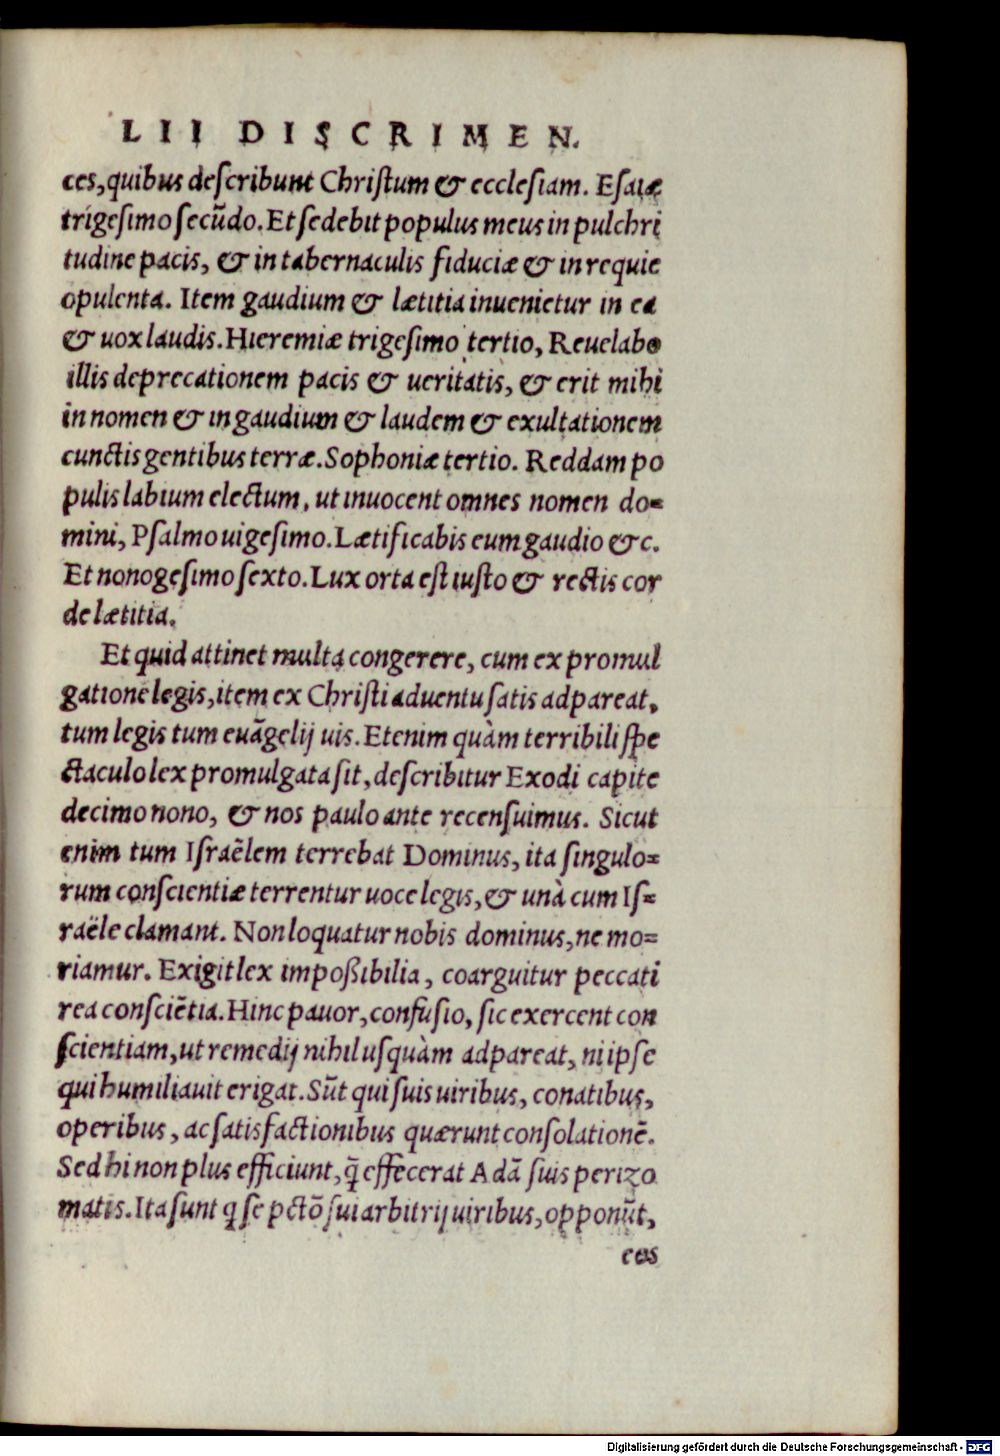 LII DISCRIMEN.
ces, quibus deſcribunt Chriſtum & eccleſiam. Eſaiæ
trigeſimo ſecũdo. Et ſedebit populus meus in pulchri
tudine pacis, & in tabernaculis fiduciæ & in requie
opulenta. Item gaudium & lætitia inuenietur in ea
& uox laudis. Hieremiæ trigeſimo tertio, Reuelabo
illis deprecationem pacis & ueritatis, & erit mihi
in nomen & in gaudium & laudem & exultationem
cunctis gentibus terræ. Sophoniæ tertio. Reddam po
pulis labium electum, ut inuocent omnes nomen do=
mini, Pſalmo uigeſimo. Lætificabis eum gaudio &c.
Et nonogeſimo ſexto. Lux orta eſt iuſto & rectis cor
de lætitia.
Et quid attinet multa congerere, cum ex promul
gatione legis, item ex Chriſti aduentu ſatis adpareat,
tum legis tum euãgelij uis. Etenim quàm terribili ſpe
ctaculo lex promulgata ſit, deſcribitur Exodi capite
decimo nono, & nos paulo ante recenſuimus. Sicut
enim tum Iſraẽlem terrebat Dominus, ita ſingulo=
rum conſcientiæ terrentur uoce legis, & unà cum Iſ=
raële clamant. Non loquatur nobis dominus, ne mo=
riamur. Exigit lex impoßibilia, coarguitur peccati
rea conſciẽtia. Hinc pauor, confuſio, ſic exercent con
ſcientiam, ut remedij nihil uſquàm adpareat, ni ipſe
qui humiliauit erigat. Sũt qui ſuis uiribus, conatibus,
operibus, ac ſatisfactionibus quærunt conſolationẽ.
Sed hi non plus efficiunt, q̃ effecerat Adã ſuis perizo
matis. Ita ſunt q ſe pctõ ſui arbitrij uiribus, opponũt,
eos
Digitalisierung gefördert durch die Deutsche Forschungsgemeinschaft - DFG